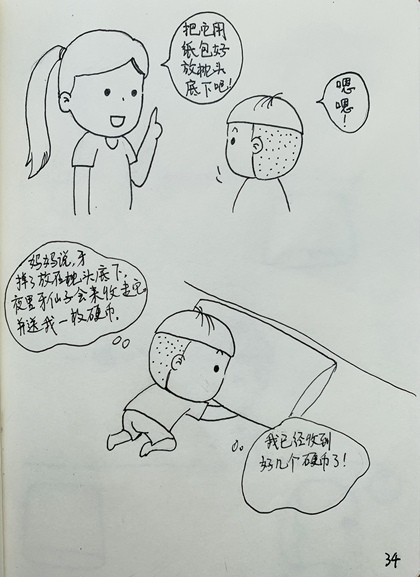 把它用
纸包好
放枕头
底下吧!
嗯
嗯!
妈妈说,牙
掉了放在枕头底下,
夜里牙仙子会来收走它
并送我一枚硬币.
我已经收到
好几个硬币了!
34